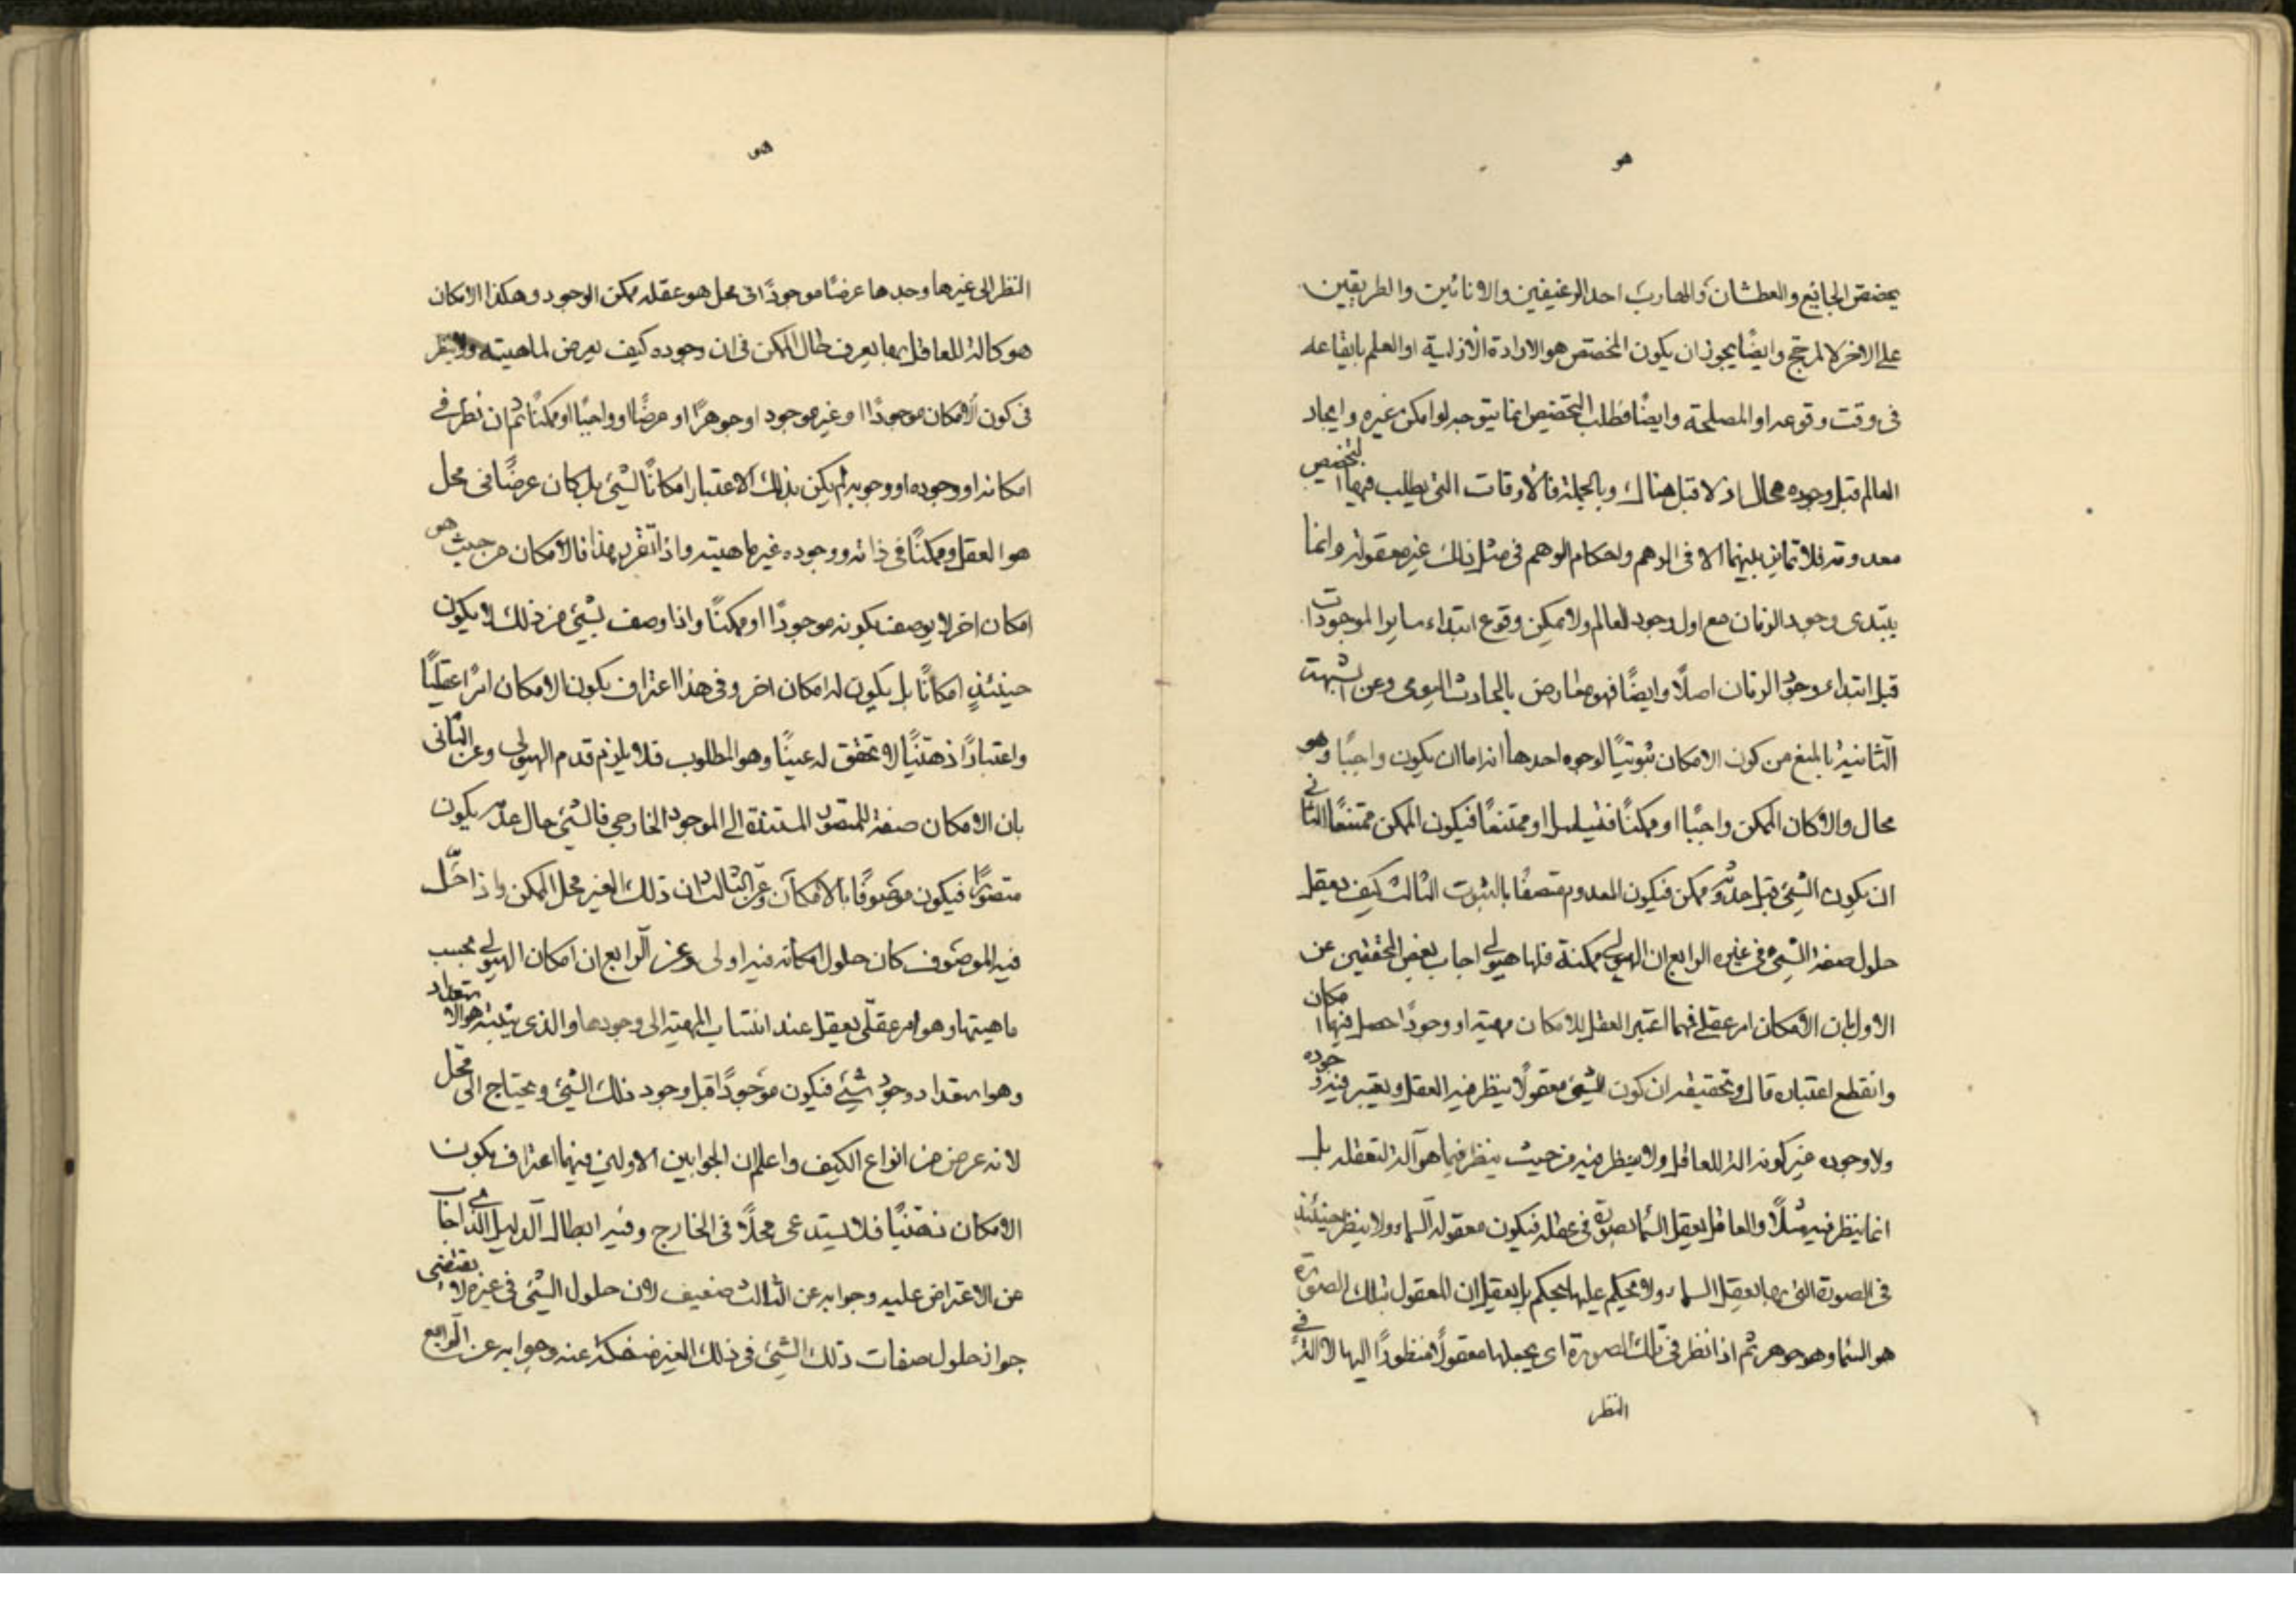 هو
يخصص الجائع والعطشان والهارب احد الرغيفين والانائين والطريقين
على الاخر لا لمرجح وايضًا يجوز ان يكون المخصص هو الارادة الأزلية او العلم بايقاعه
فى وقت وقوعه او المصلحة وايضًا فطلب التخصيص انما يتوجه لو امكن غيره وايجاد
العالم قبل وجوده محال اذ لا قبل هناك وبالجملة فالأوقات التى يطلب فيها التخصيص
معدومة فلا تمايز بينها الا فى الوهم واحكام الوهم فى مثل ذلك غير معقولة وانما
يبتدى وجود الزمان مع اول وجود العالم ولا يمكن وقوع ابتداء ساير الموجودات
قبل ابتداء وجود الزمان اصلًا وايضًا فهو معارض بالحادث اليومى وعن الشبهة
الثانية بالمنع من كون الامكان ثبوتيًا لوجوه احدها انه اما ان يكون واجبًا وهو
محال والا لكان الممكن واجبًا او ممكنًا فتسلسل او ممتنعًا فيكون الممكن ممتنعًا الثانى
ان يكون الشئ قبل حدوثه ممكن فيكون المعدوم متصفًا بالثبوت الثالث كيف يعقل
حلول صفة الشئ فى غيره الرابع ان الهيولى ممكنة فلها هيولى اجاب بعض المحققين عن
الاول بان الأمكان امر عقلى فمهما اعتبر العقل للامكان مهية او وجودًا حصل فيها امكان
وانقطع اعتباره قال وتحقيقه ان كون الشئ معقولًا ينظر فيه العقل ويعتبر فيه وجوده
ولا وجوده غير كونه الة للعاقل ولا ينظر فيه من حيث ينظر فيما هو آلة لتعقله بل
انما ينظر فيه مثلًا والعاقل يعقل السماء بصورة فى عقله فيكون معقوله السماء ولا ينظر حينئذ
فى الصورة التى بها يعقل السماء ولا يحكم عليها بحكم بل يعقل ان المعقول بتلك الصورة
هو السماء وهو جوهر ثم اذا نظر فى تلك الصورة اى يجعلها معقولًا منظورًا اليها لا الة فى
النظر
هو
النظر الى غيرها وجدها عرضًا موجودًا فى محل هو عقله ممكن الوجود وهكذا الامكان
هو كالة للعاقل بها يعرف حال الممكن فى ان وجوده كيف يعرض لماهيته ولا ينظر
فى كون الأمكان موجودًا او غير موجود او جوهرًا او عرضًا او واجبًا او ممكنًا ثم ان نظر فى
امكانه او وجوده او وجوبه لم يكن بذلك الاعتبار امكانًا لشئ بل كان عرضًا فى محل
هو العقل وممكنًا فى ذاته ووجوده غير ماهيته واذا تقرر هذا فالامكان من حيث هو
امكان اخر لا يوصف بكونه موجودًا او ممكنًا واذا وصف بشئ من ذلك لا يكون
حينئذٍ امكانًا بل يكون له امكان اخر وفى هذا اعتراف بكون الامكان امرًا عقليًا
واعتبارًا ذهنيًا لا تحقق له عينًا وهو المطلوب فلا يلزم قدم الهيولى وعن الثانى
بان الامكان صفة للمتصور المستندة الى الموجود الخارجى فالشئ حال عدمه يكون
متصورًا فيكون موصوفًا بالامكان وعن الثالث ان ذلك الغير محل الممكن واذا حلّ
فيه الموصوف كان حلول امكانه فيه اولى وعن الرابع ان امكان الهيولى بحسب
ماهيتها وهو امر عقلّى يعقل عند انتساب المهية الى وجودها والذى نثبته هو الاستعداد
وهو استعداد وجود شئ فيكون موجودًا قبل وجود ذلك الشئ ويحتاج الى محل
لانه عرض من انواع الكيف واعلم ان الجوابين الاولين فيهما اعتراف بكون
الامكان ذهنيًا فلا يستدعى محلًا فى الخارج وفيه ابطال الدليل الذى اجاب
عن الاعتراض عليه وجوابه عن الثالث ضعيف لان حلول الشئ فى غيره لا يقتضى
جواز حلول صفات ذلك الشئ فى ذلك الغير منفكة عنه وجوابه عن الرابع